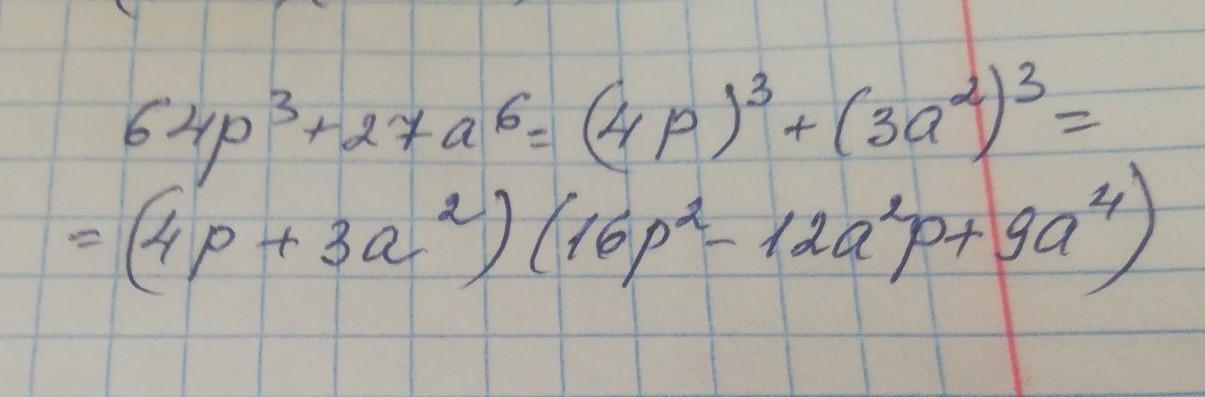 64p³+27a⁶=(4p)³+(3a²)³=
=(4p+3a²)(16p²-12a²p+9a⁴)